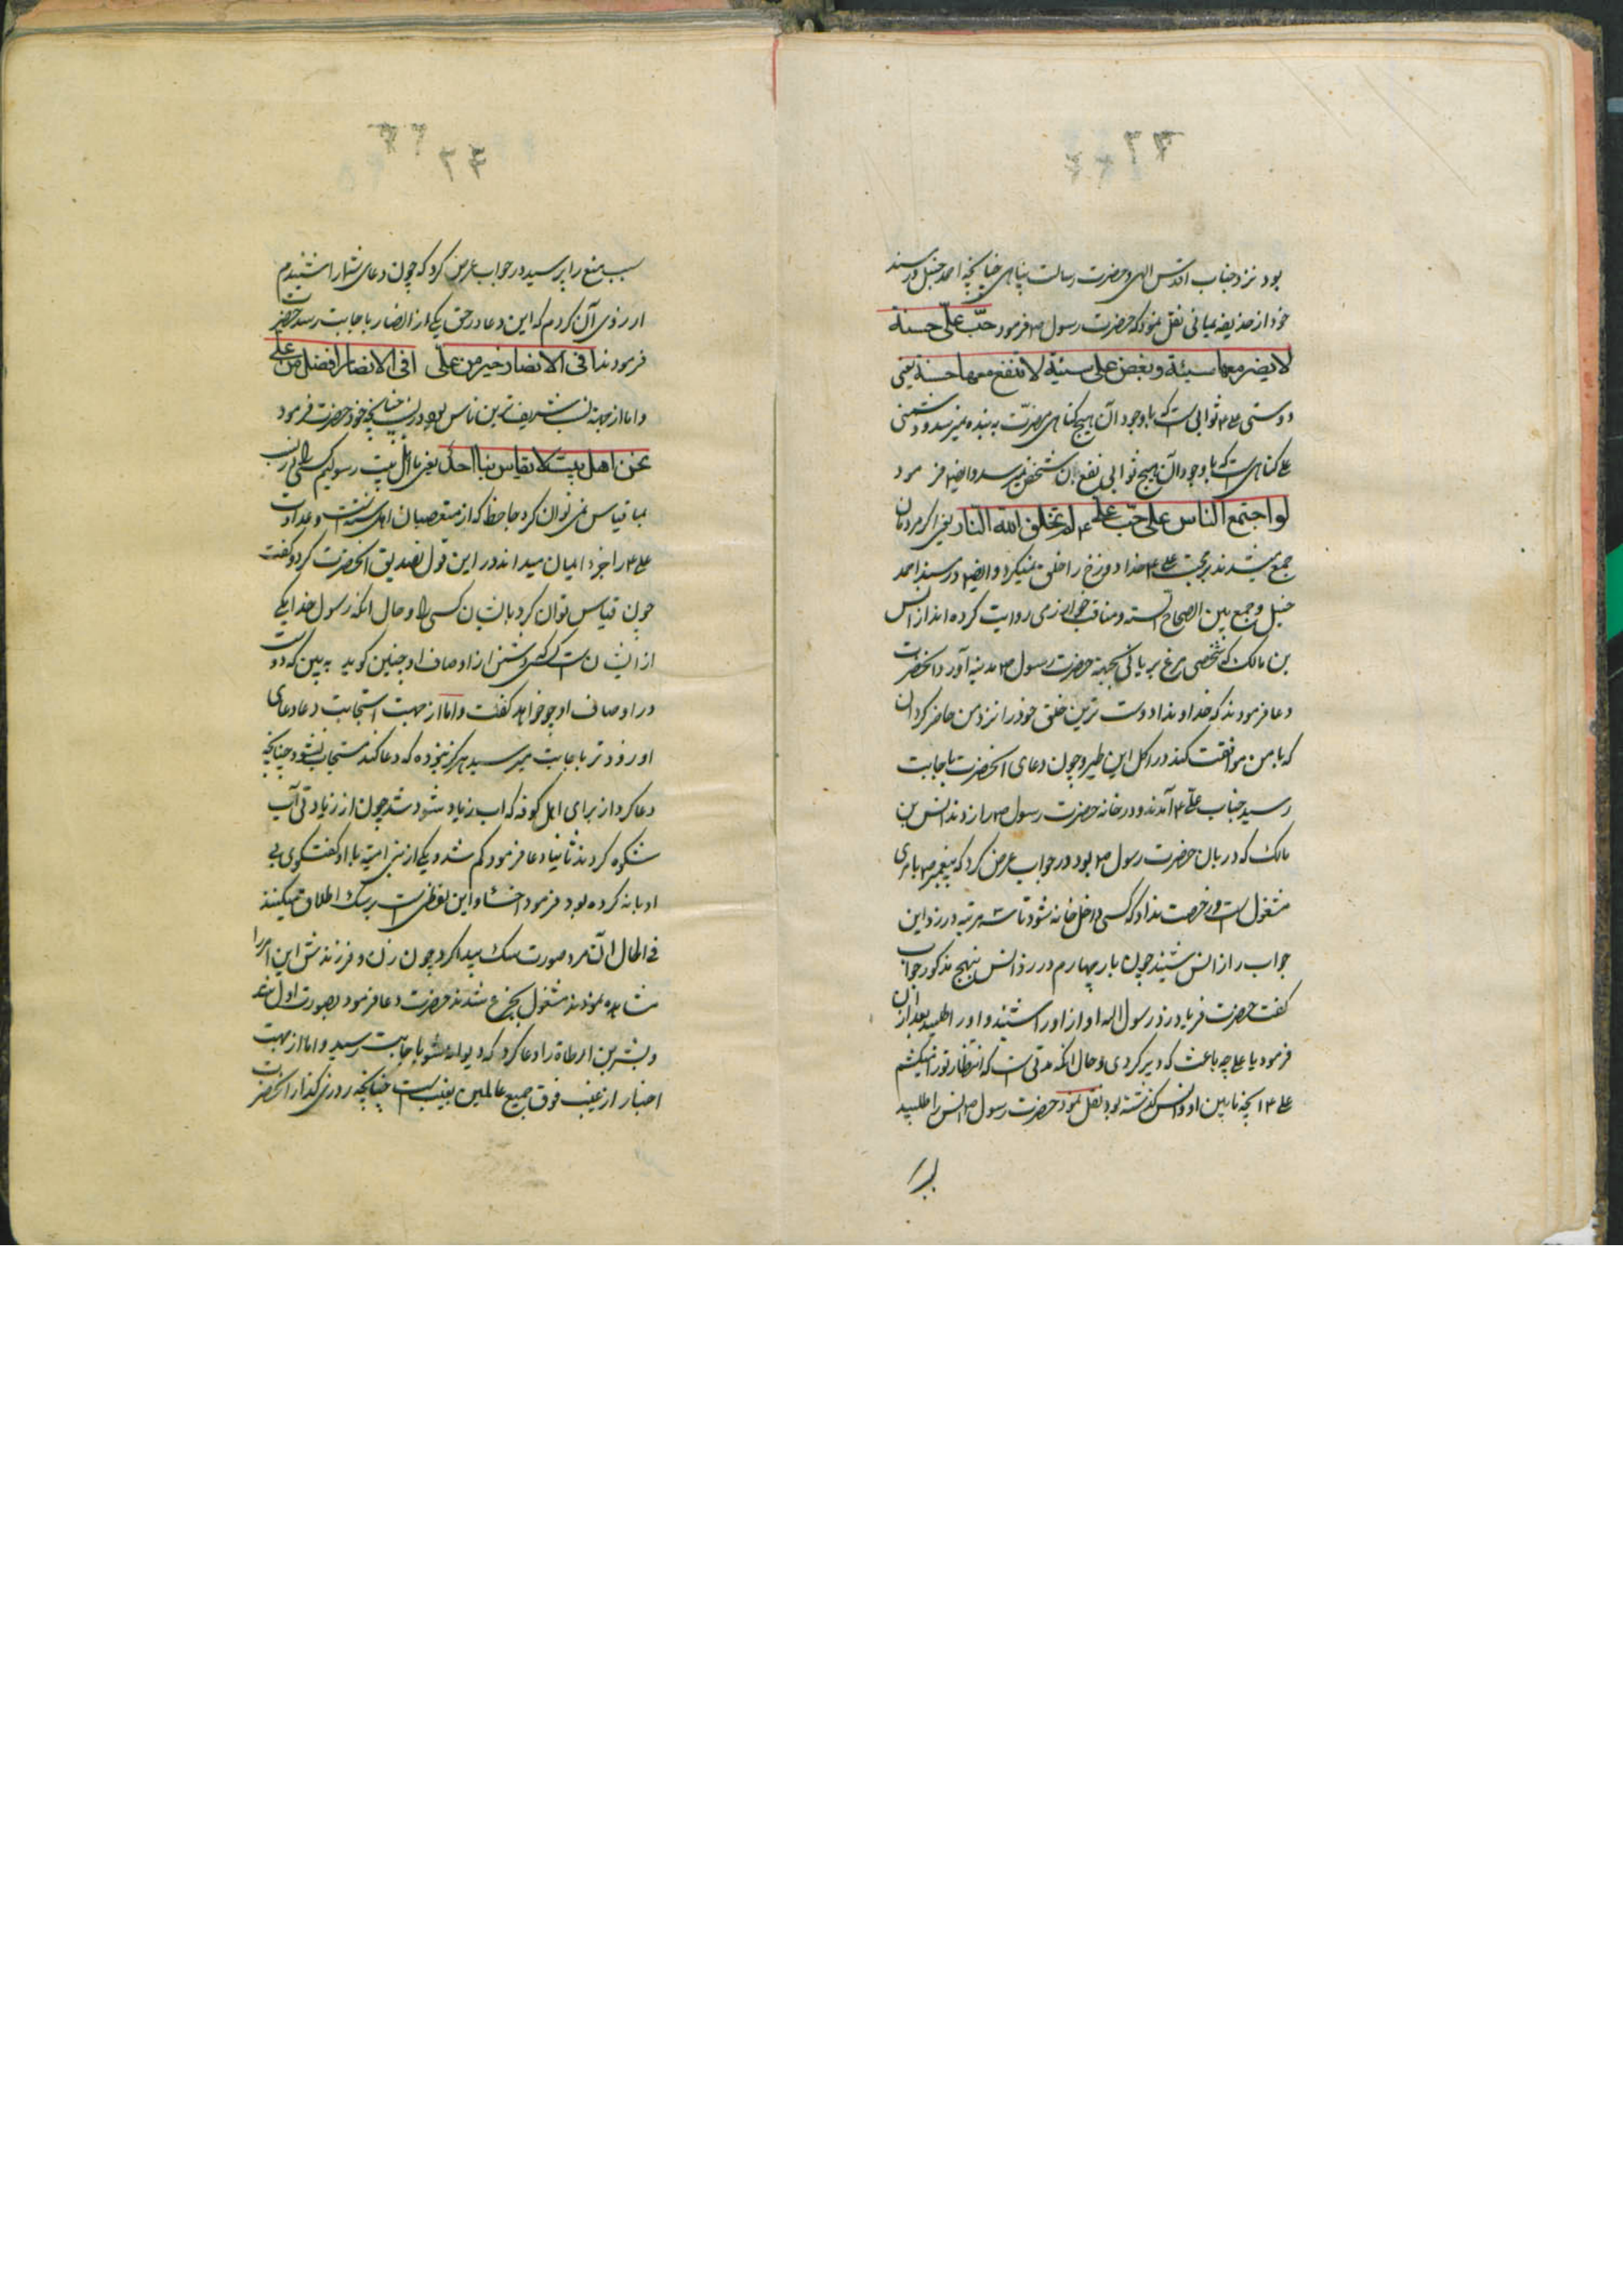 ۲۳
بود نزد جناب اقدس الهی و حضرت رسالت پناهی چنانچه احمد حنبل در مسند
خود از حذیفه یمانی نقل نموده که حضرت رسول ص فرمود حبّ علّی حسنة
لا یضر معها سیئة و بغض علی سیئة لا تنفع معها حسنة یعنی
دوستی علی ع ثوابی است که با وجود آن هیچ کناهی مضرّت به بنده نمیرسد و دشمنی
علی کناهی است که با وجود آن هیچ ثوابی نفع بان شخص نمیرسد و ایضا فرمود
لو اجتمع الناس علی حبّ علی ع لم یخلق الله النار یعنی اکر مردمان
جمع میشدند بر محبت علی ع خدا دوزخ را خلق نمیکرد و ایضا در مسند احمد
حنبل و جمع بین الصحاح السته و مناقب خوارزمی روایت کرده اند از انس
بن مالک که شخصی مرغ بریانی بجهة حضرت رسول ص مدینه آورد انحضرت
دعا فرمودند که خداوندا دوست ترین خلق خود را نزد من حاضر کردان
که با من موافقت کند در اکل این طیر و چون دعای انحضرت باجابت
رسید جناب علّی ع آمدند و در خانه حضرت رسول ص را زدند انس بن
مالک که دربان حضرت رسول ص بود در جواب عرض کرد که پیغمبر ص بامری
مشغول است و رخصت نداد که کسی داخل خانه شود تا سه مرتبه در زد این
جواب را از انس شنید چون بار چهارم در زد انس بنهج مذکور جواب
کفت حضرت فریاد زد رسول اله اواز او را شنید و او را طلبید بعد از ان
فرمود یا علی چه باعث که دیر کردی و حال انکه مدتی است که انتظار تو را میکشم
علی ع انچه مابین او و انس کذشته بود نقل نمود حضرت رسول ص انس را طلبید
۲۴
سبب منع را پرسید در جواب عرض کرد که چون دعای شما را شنیدم
ارزوی آن کردم که این دعا در حق یکی از انصار باجابت رسد حضرت
فرمودند افی الانصار خیر من علی افی الانصار افضل من علی
و اما از جهة نسب شریفترین ناس بود در نسب چنانچه خود حضرت فرمود
نحن اهل بیت لا یقاس بنا احد یعنی ما اهل بیت رسولیم کسی را در نسب
بما قیاس نمی توان کرد جاحظ که از متعصبان اهل سنت است و عداوت
علی ع را جزء ایمان میداند در این قول تصدیق انحضرت کرد و کفت
چون قیاس توان کرد بایشان کسی را و حال انکه رسول خدا یکی
از ایشان است کسی که دشمن از اوصاف او چنین کوید به بین که دوست
در اوصاف او چه خواهد کفت و اما از جهت استجابت دعا دعای
او زودتر باجابت میرسید هرکز نبوده که دعا کند مستجاب نشود چنانچه
دعا کرد از برای اهل کوفه که اب زیاد شود شد چون از زیادتی آب
شکوه کردند ثانیا دعا فرمود کم شد و یکی از بنی امیّه با او کفتکوی بی
ادبانه کرده بود فرمود اخسا و این لفظی است بر سک اطلاق میکنند
فی الحال آن مرد صورت سک پیدا کرد چون زن و فرزندش این امر را
مشاهده نمودند مشغول بجزع شدند حضرت دعا فرمود بصورت اول شد
و بشر بن ارطاة را دعا کرد که دیوانه شو باجابت رسید و اما از جهت
اخبار از غیب فوق جمیع عالمین بغیب است چنانچه روزی کذار انحضرت